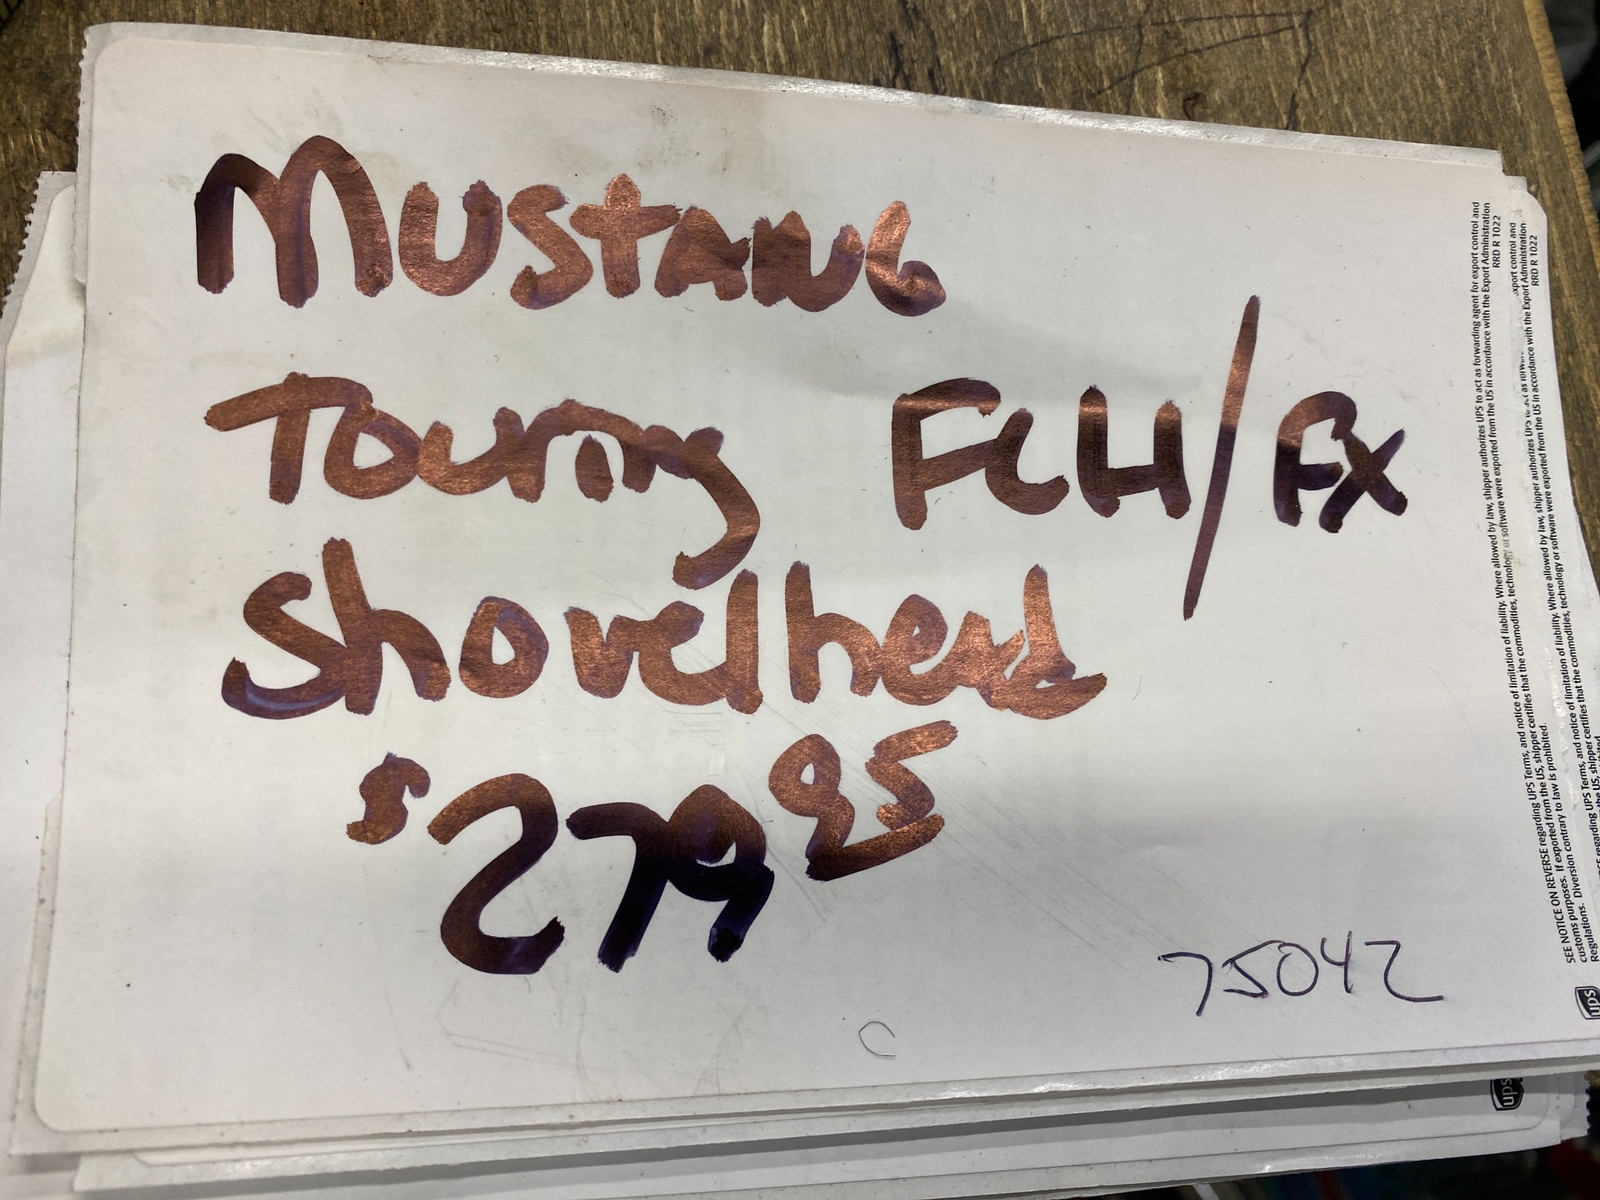 MUSTANG
Touring FLH/FX
Shovelhead
$279 95
75042
SEE NOTICE ON REVERSE regarding UPS Terms, and notice of limitation of liability. Where allowed by law, shipper authorizes UPS to act as forwarding agent for export control and
customs purposes. If exported from the US, shipper certifies that the commodities, technology or software were exported from the US in accordance with the Export Administration
Regulations. Diversion contrary to law is prohibited.
RRD R 1022
ups
export control and
the Export Administration
RRD R 1022
ups